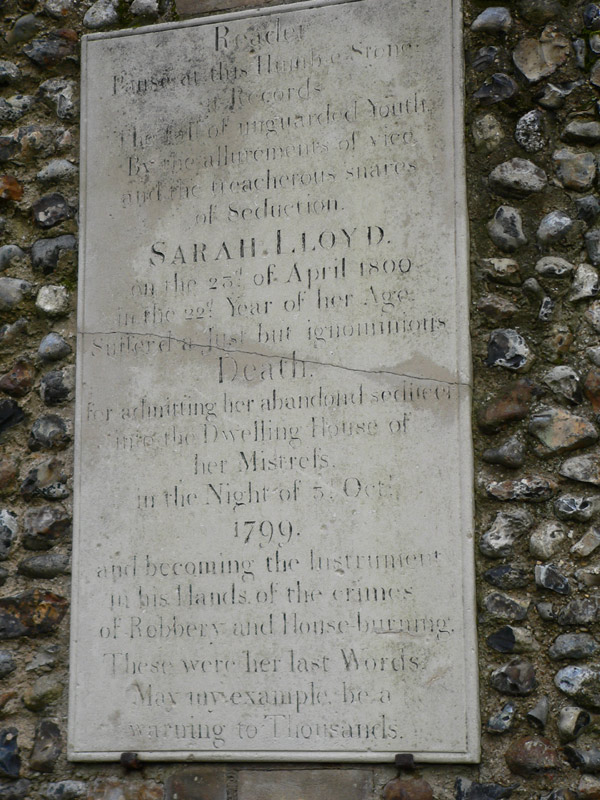 Reader
Pause at this Humble Stone
it Records
The Fall of unguarded Youth
By the allurements of vice
and the treacherous snares
of Seduction.
SARAH LLOYD.
on the 23d. of April 1800
in the 22d. Year of her Age
Sufferd a Just but ignominious
Death.
for admitting her abandond seducer
into the Dwelling House of
her Mistress.
in the Night of 3d. Octr.
1799.
and becoming the Instrument
in his Hands of the crimes
of Robbery and House-burning.
These were her last Words
May my example be a
warning to Thousands.